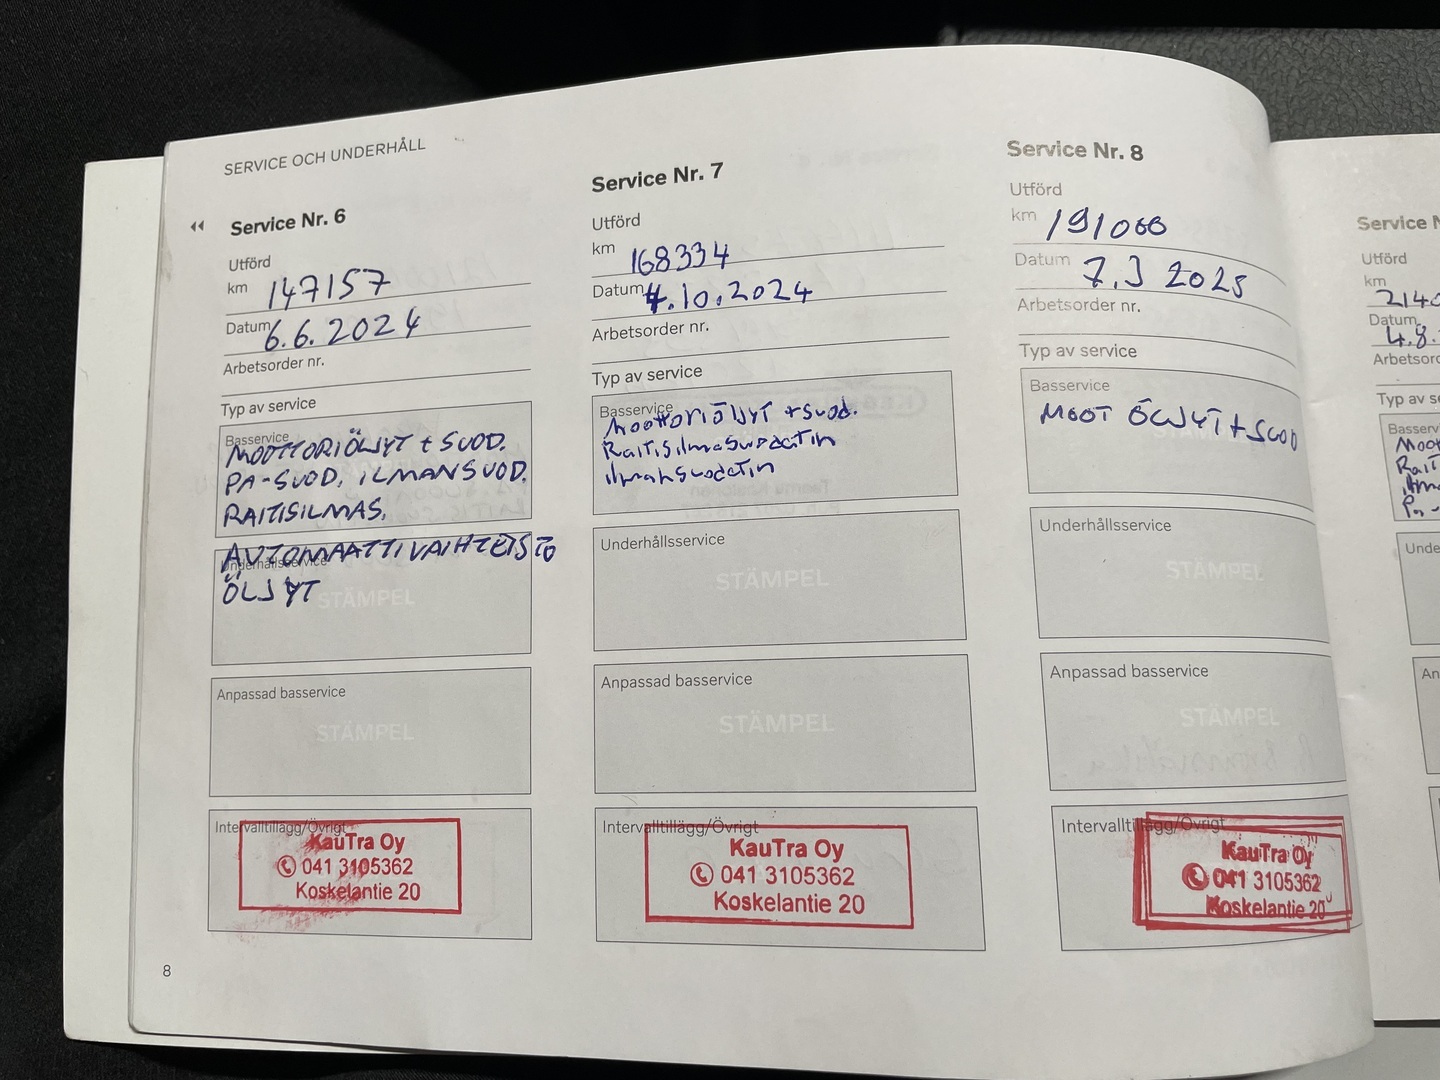 SERVICE OCH UNDERHÅLL
Service Nr. 6
Utförd
km 147157
Datum 6.6.2024
Arbetsorder nr.
Typ av service
Basservice
MOOTTORIÖLJYT + SUOD.
PA-SUOD, ILMANSUOD.
RAITISILMAS.
Underhållsservice
AUTOMAATTIVAIHTEISTO
ÖLJYT
STÄMPEL
Anpassad basservice
STÄMPEL
Intervalltillägg/Övrigt
KauTra Oy
041 3105362
Koskelantie 20
8
Service Nr. 7
Utförd
km 168334
Datum 4.10.2024
Arbetsorder nr.
Typ av service
Basservice
Moottoriöljyt + suod.
Raitisilmasuodatin
ilmansuodatin
Underhållsservice
STÄMPEL
Anpassad basservice
STÄMPEL
Intervalltillägg/Övrigt
KauTra Oy
041 3105362
Koskelantie 20
Service Nr. 8
Utförd
km 191000
Datum 7.3 2025
Arbetsorder nr.
Typ av service
Basservice
MOOT ÖLJYT + SUOD
Underhållsservice
STÄMPEL
Anpassad basservice
STÄMPEL
Intervalltillägg/Övrigt
KauTra Oy
041 3105362
Koskelantie 20
Service N
Utförd
km
2140
Datum
4.8.
Arbetsord
Typ av se
Basserv
Moot
Rait
Ilma
Pa-
Unde
An